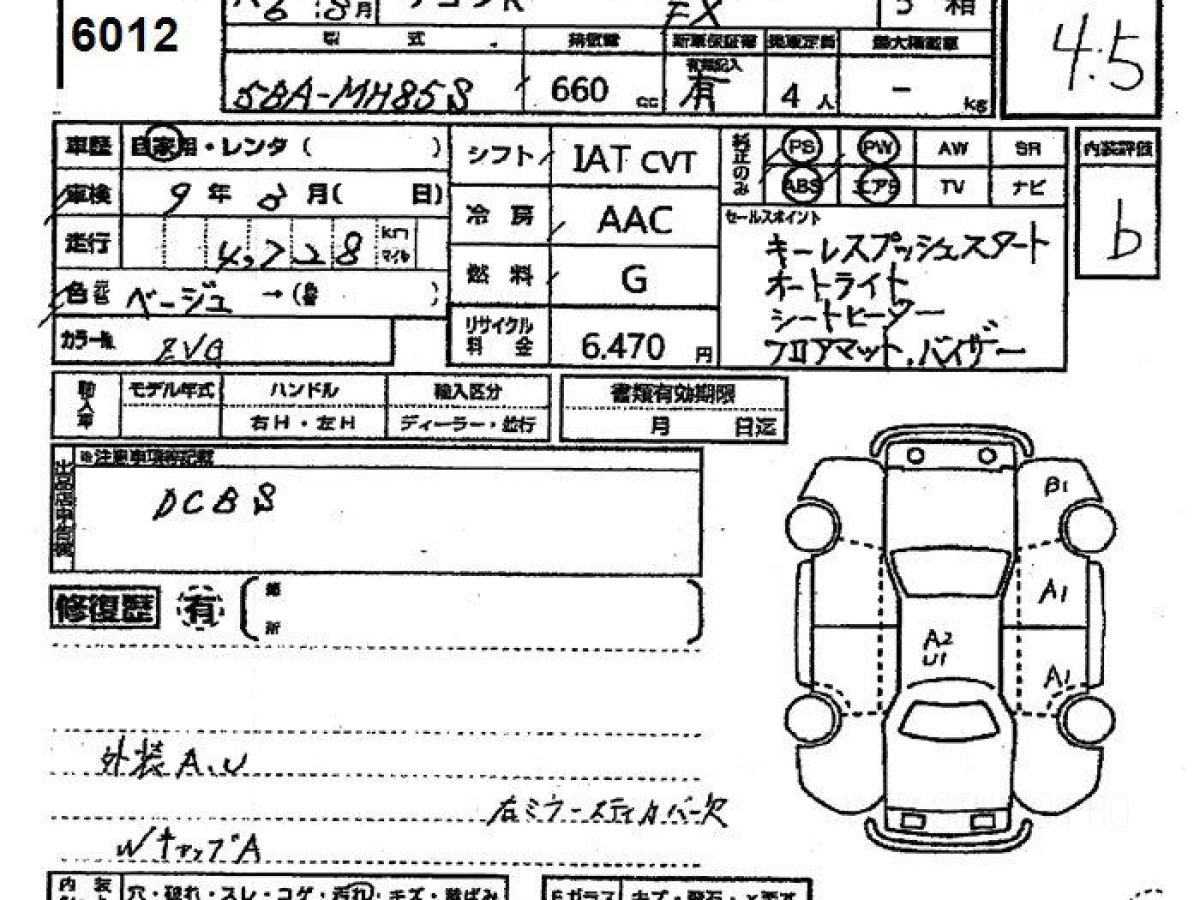 6012
R6 8月 ワゴンR FX 5
型 式 排気量 新車保証書 乗車定員 最大積載量
5BA-MH85S 660 cc 有無記入 有 4 人 - kg
4.5
車歴 自家用・レンタ ( )
車検 9 年 8 月( 日)
走行 4,728 km マイル
色 ベージュ →( )
カラー№ ZVG
シフト IAT CVT
冷 房 AAC
燃 料 G
リサイクル料 金 6.470 円
純正のみ PS PW AW SR
ABS エアB TV ナビ
セールスポイント
キーレスプッシュスタート
オートライト
シートヒーター
フロアマット.バイザー
内装評価
b
輸入車 モデル年式 ハンドル 輸入区分
右H・左H ディーラー・並行
書類有効期限
月 日迄
出品店申告欄 ※注意事項等記載
DCBS
修復歴 有
箇
所
B1
A1
A2
U1
A1
外装A.U
右ミラーステイカバー欠
WキャップA
内 装 穴・破れ・スレ・コゲ・汚れ・キズ・
Fガラス キズ・飛石・